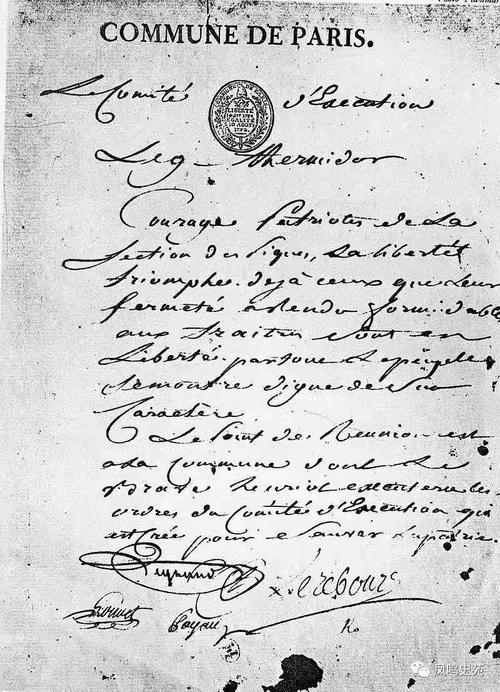 COMMUNE DE PARIS.
Le Comité d'Execution
LIBERTÉ
EGALITÉ
10 AOUT
1792
Le 9 thermidor
Courage Patriotes de la
section des Piques, La liberté
triomphe deja ceux que Leur
fermeté a rendu formidables
aux traitres sont en
Liberté partout Le peuple
se montre digne de son
Caractère
Le Point de Reunion est
a la Commune dont le
brave henriot executera les
ordres du Comité d'Execution qui
est crée pour sauver La patrie.
Legrand Lerebours
Louvet Payan R.
凤鸣史苑